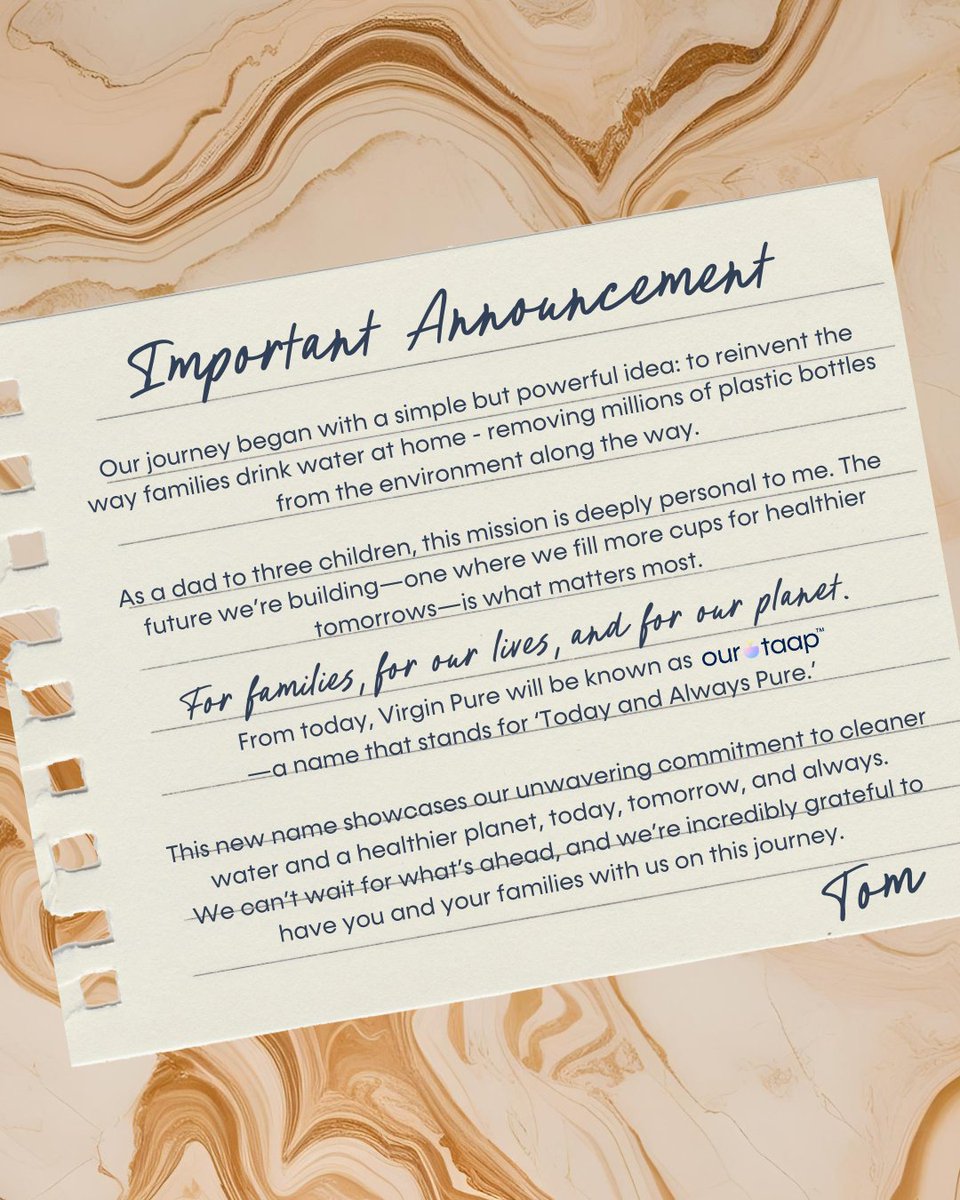 Important Announcement
Our journey began with a simple but powerful idea: to reinvent the
way families drink water at home - removing millions of plastic bottles
from the environment along the way.
As a dad to three children, this mission is deeply personal to me. The
future we're building—one where we fill more cups for healthier
tomorrows—is what matters most.
For families, for our lives, and for our planet.
From today, Virgin Pure will be known as our taap™
—a name that stands for 'Today and Always Pure.'
This new name showcases our unwavering commitment to cleaner
water and a healthier planet, today, tomorrow, and always.
We can't wait for what's ahead, and we're incredibly grateful to
have you and your families with us on this journey.
Tom